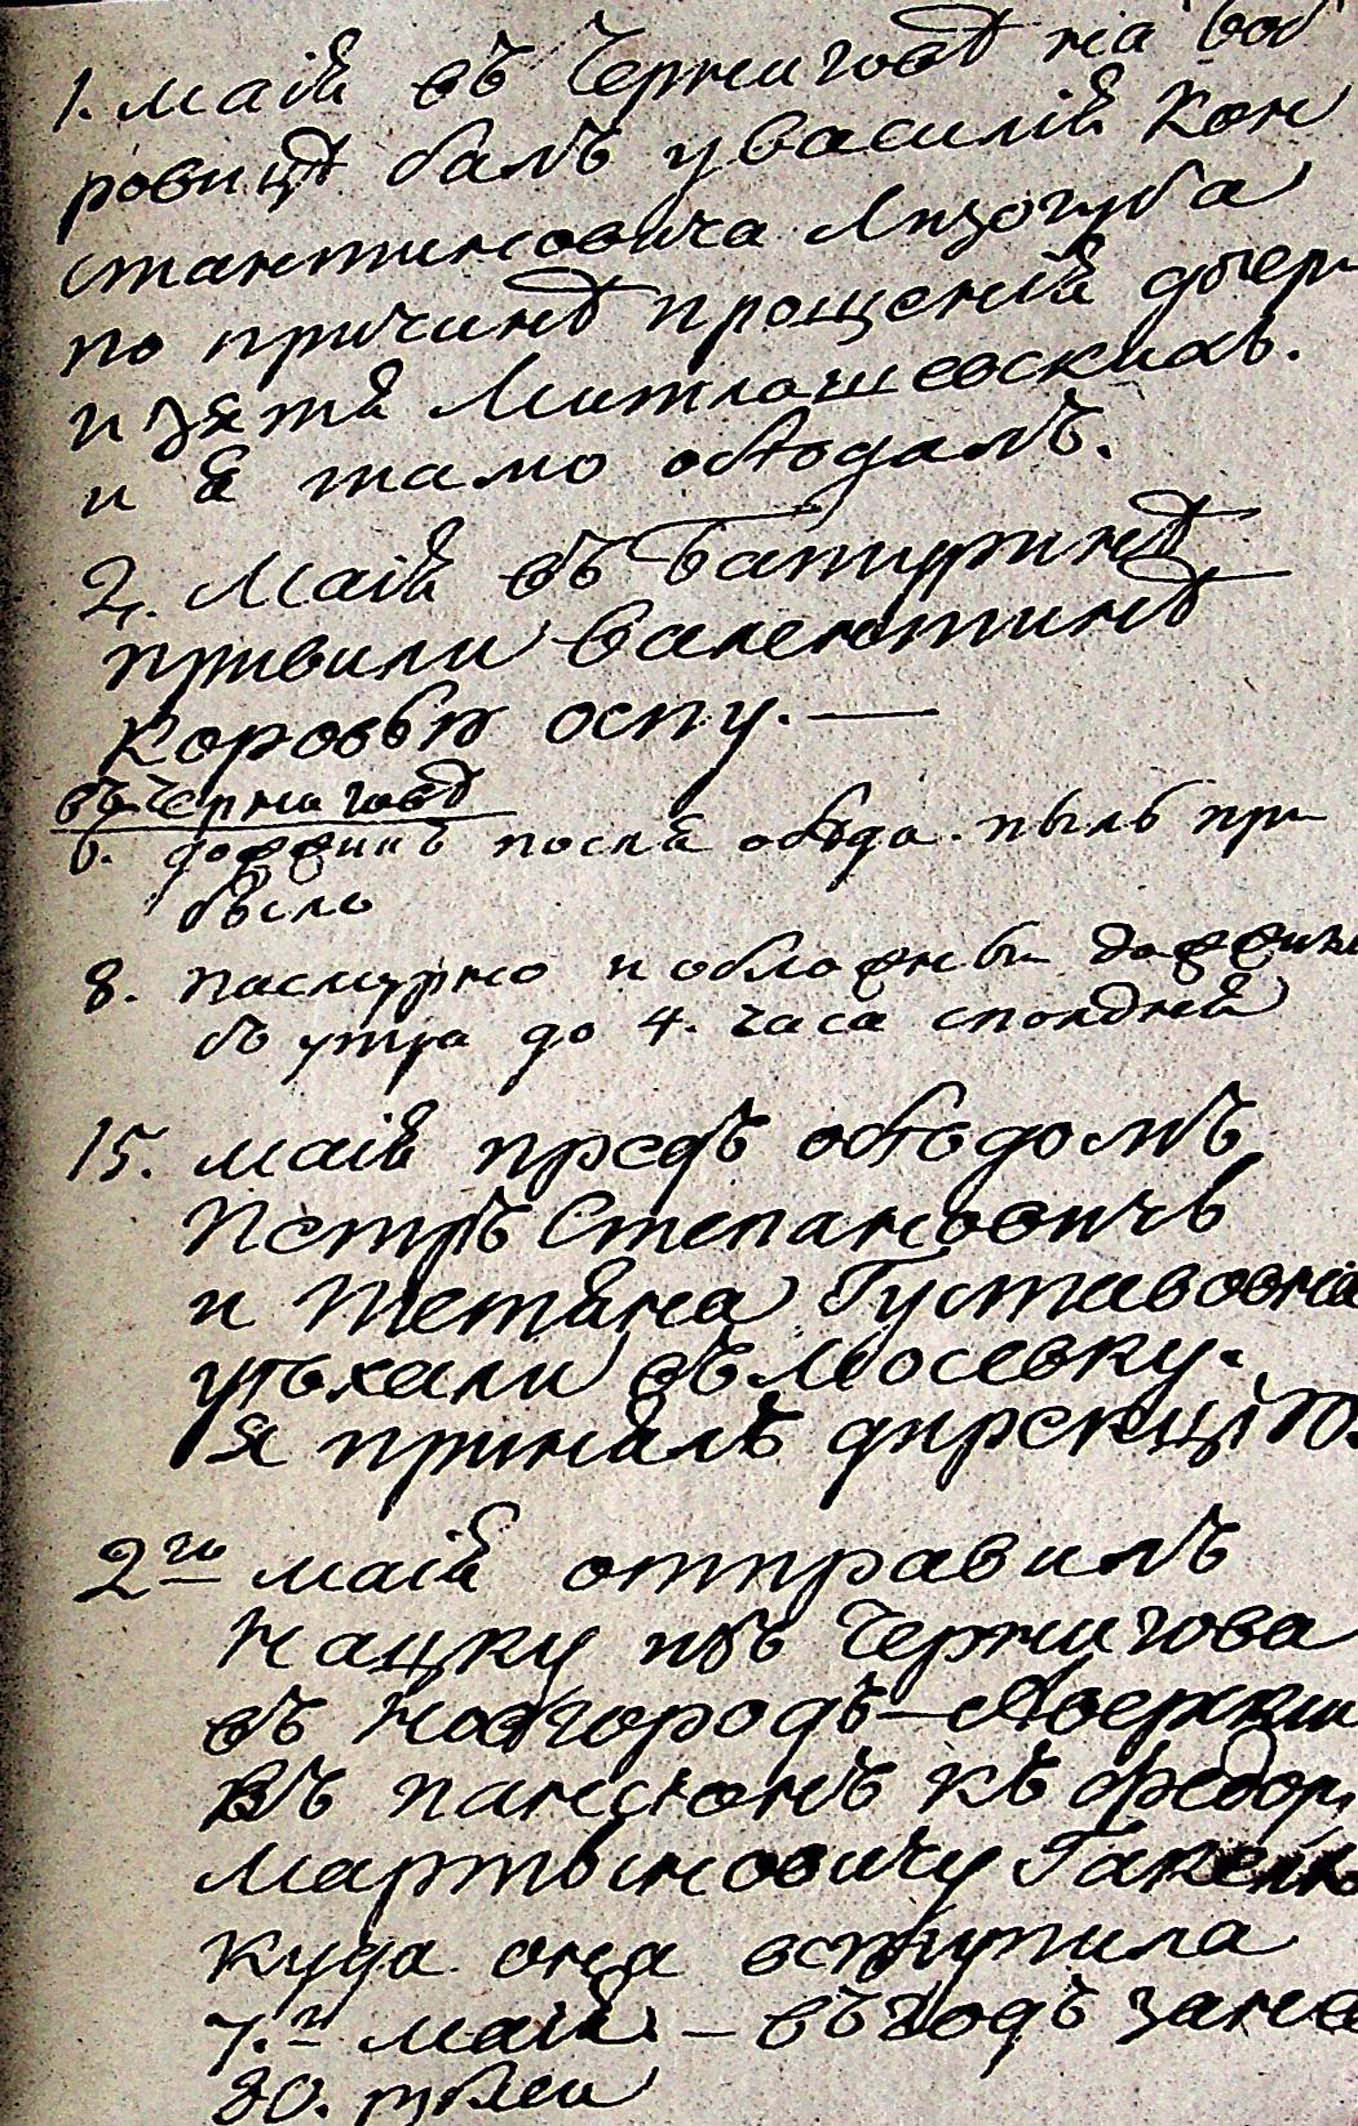 1. маія въ Черниговѣ на боб
ровицѣ балъ у василія Кон
стантиновича Лизогуба
по причинѣ прощенія дочер
и зятя Милошевскихъ.
и я тамо обѣдалъ.
2. Маія въ Батуринѣ
привили Валентинѣ
Коровью оспу. —
въ Черниговѣ
6. дождикъ послѣ обѣда. пыль при
било
8. пасмурно и обложны дожжикъ
съ утра до 4. часа сполдня
15. маія предъ обѣдомъ
Петръ Степановичъ
и Тетяна Густавовна
уѣхали въ Мосевку.
Я принялъ дирекцію.
2го маія отправилъ
Нацку изъ Чернигова
въ Новгородъ-Сѣверски
въ пансіонъ къ Федору
Мартыновичу Гакен
куда она вступила
7.г маія. — въ годъ за нее
80. рублей